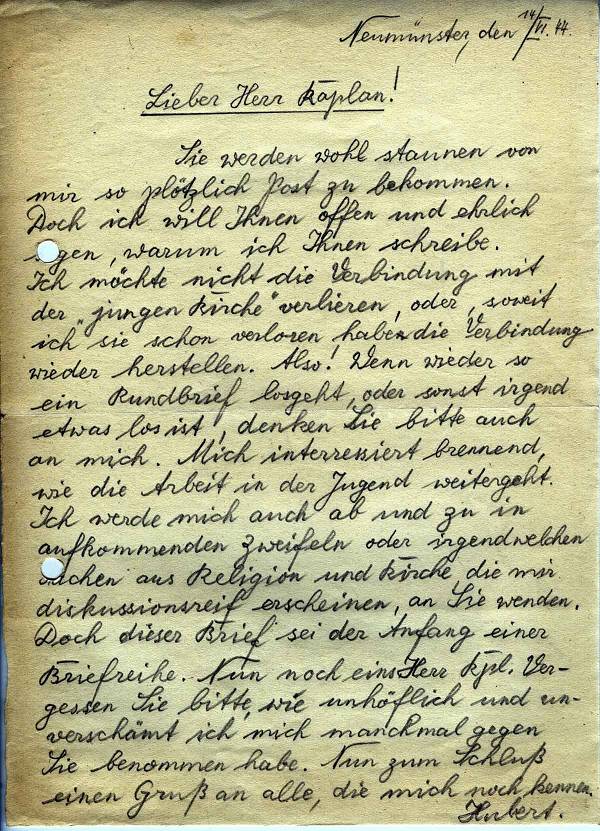 Neumünster, den 14/VI. 44.
Lieber Herr Kaplan!
Sie werden wohl staunen von
mir so plötzlich Post zu bekommen.
Doch ich will Ihnen offen und ehrlich
sagen, warum ich Ihnen schreibe.
Ich möchte nicht die Verbindung mit
der „jungen Kirche" verlieren, oder, soweit
ich sie schon verloren habe, die Verbindung
wieder herstellen. Also! Wenn wieder so
ein Rundbrief losgeht, oder sonst irgend
etwas los ist, denken Sie bitte auch
an mich. Mich interressiert brennend,
wie die Arbeit in der Jugend weitergeht.
Ich werde mich auch ab und zu in
aufkommenden Zweifeln oder irgendwelchen
Sachen aus Religion und Kirche, die mir
diskussionsreif erscheinen, an Sie wenden.
Doch dieser Brief sei der Anfang einer
Briefreihe. Nun noch eins Herr Kpl. Ver-
gessen Sie bitte, wie unhöflich und un-
verschämt ich mich manchmal gegen
Sie benommen habe. Nun zum Schluß
einen Gruß an alle, die mich noch kennen.
Hubert.